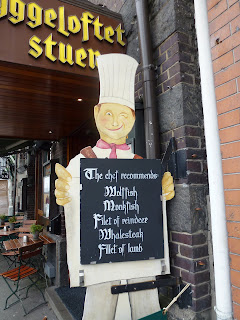 yggeloftet
stuen
The chef recommends
Wolffish
Monkfish
Filet of reindeer
Whalesteak
Fillet of lamb